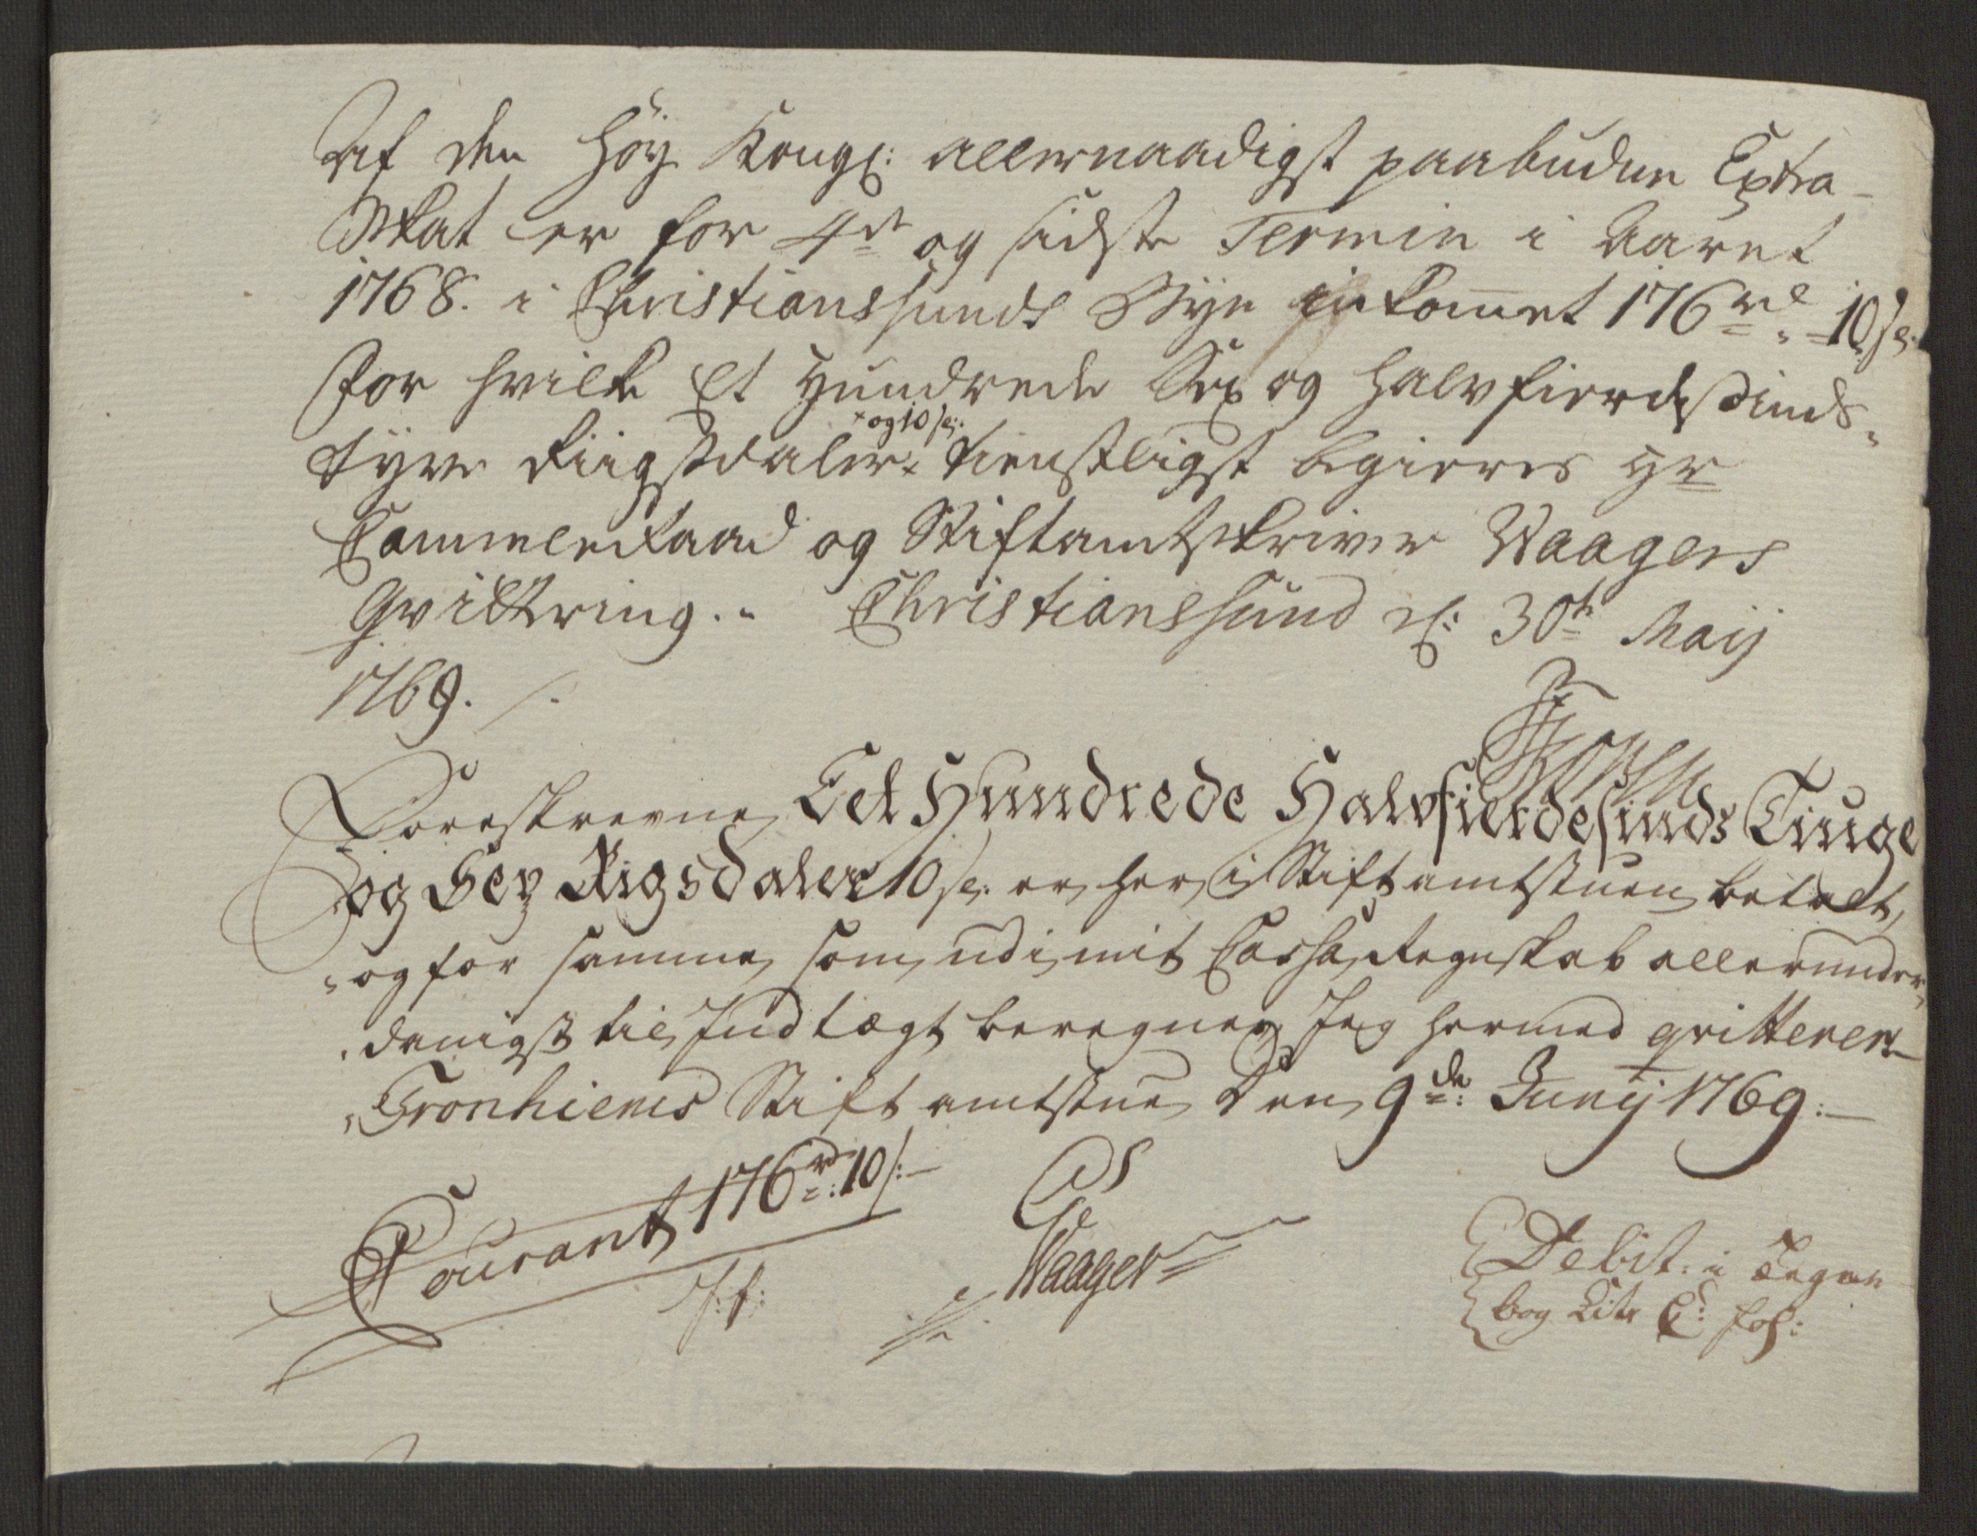 Af den Høy Kongl: allernaadigst paabudne Extra-
Skat er for 4de og sidste Termin i Aaret
1768. i Christianssunds Bye inkommet 176rd 10s:
For hvilke Et Hundrede Sex og halvfierdesinds-
+ og 10s:
tyve Riigsdaler + tienstligst begieres Hr
Cammerraad og Stiftamtskriver Waagers
Qvittering. Christianssund d: 30te Maij
1769.
Foreskrevne Eet Hundrede Halvfierdesinds Tiuge
og Sex Rigsdaler 10s: er her i Stiftamtstuen betalt,
og for samme som udi mit Cassa Regnskab allerunder
danigst til Indtægt beregnes Jeg hermed qvitterer
Tronhiems Stiftamtstue Den 9de: Junij 1769:
Courant 176rd: 10s:
Waager
Debit: i Dagne
bog Litr C: fol: